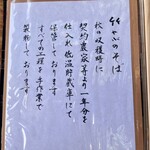 竹やぶのそば
秋の収穫時に
契約農家等より一年分を
仕入れ低温貯蔵庫にて
保管しております
すべての工程を手作業で
製粉しております